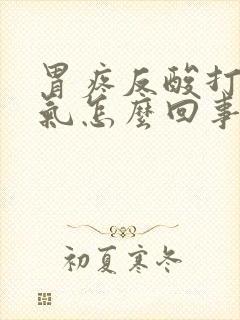 胃疼反酸打
氣怎麼回事
初夏寒冬